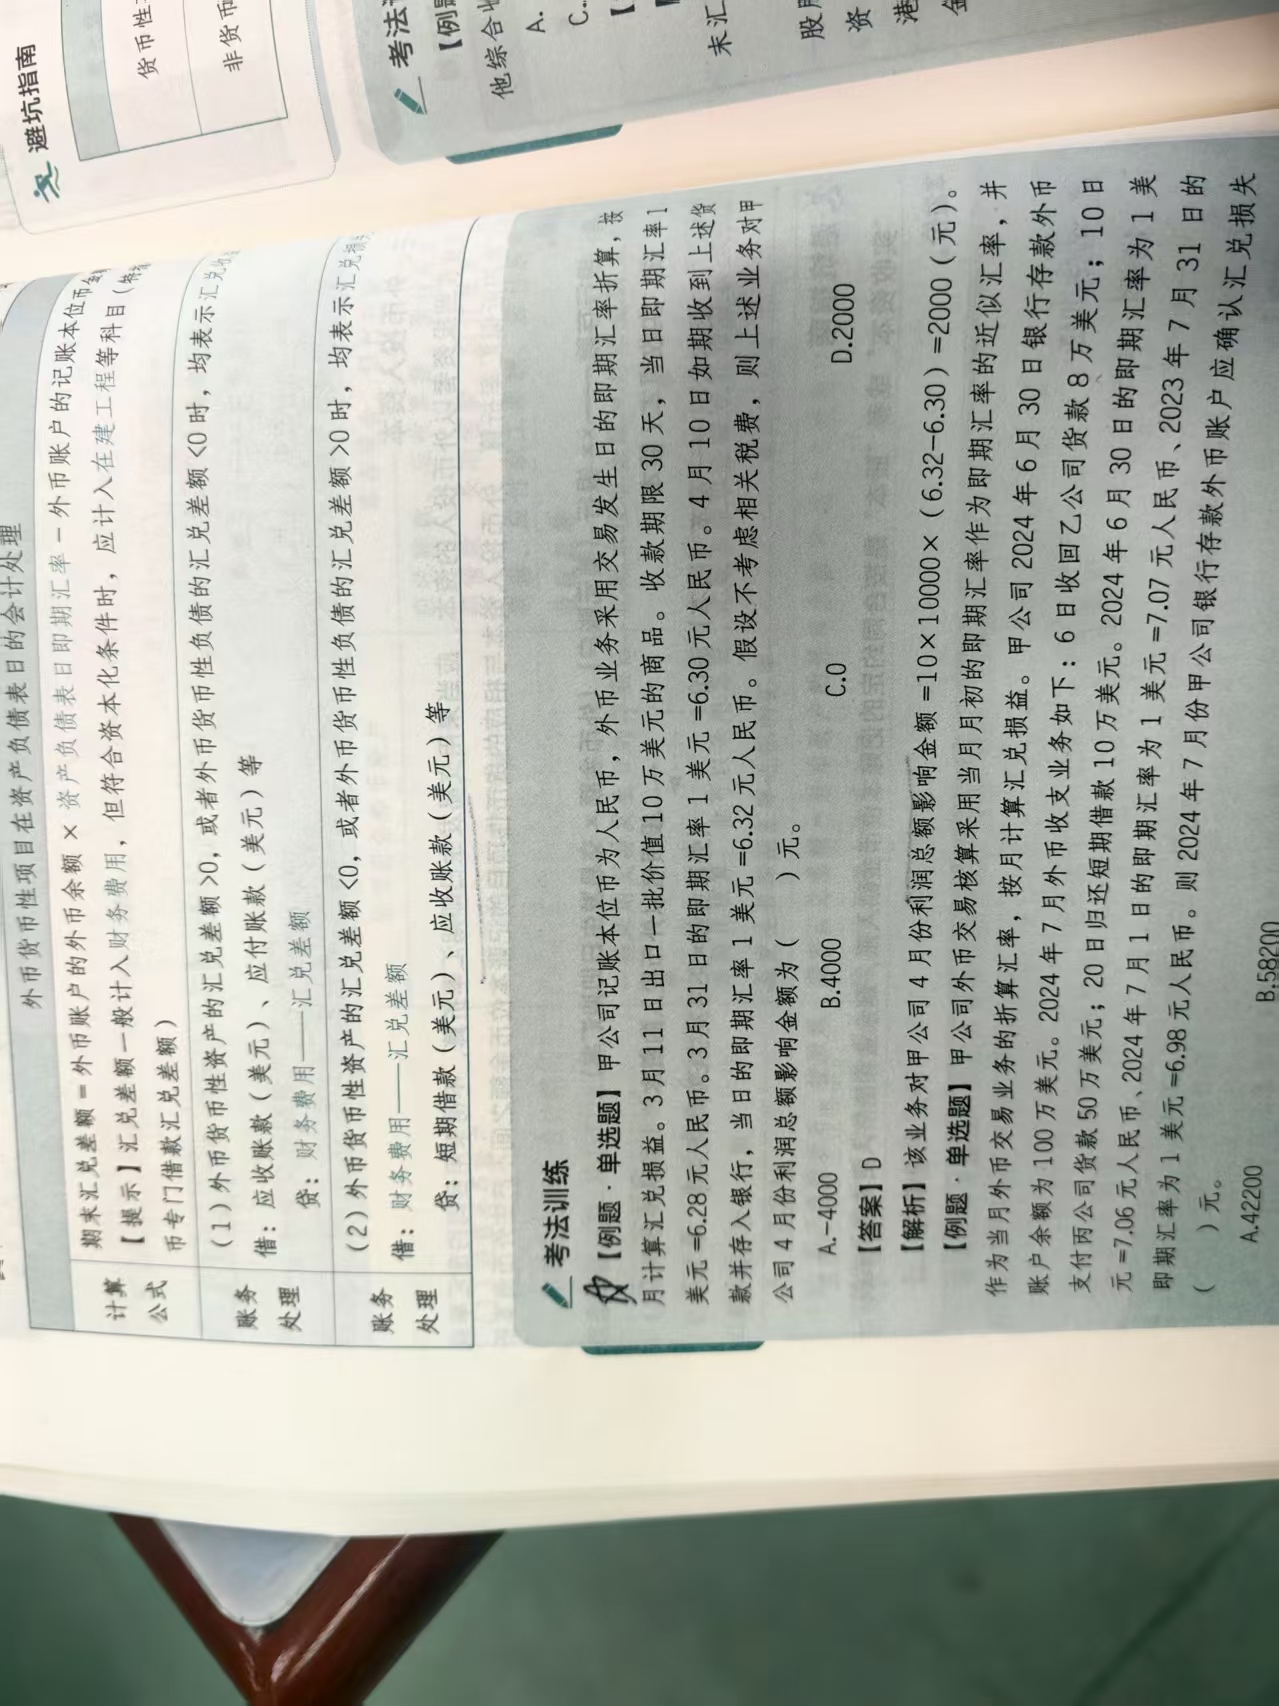 外币货币性项目在资产负债表日的会计处理
计算
公式
期末汇兑差额 = 外币账户的外币余额 × 资产负债表日即期汇率 - 外币账户的记账本位币
【提示】汇兑差额一般计入财务费用，但符合资本化条件时，应计入在建工程等科目（
币专门借款汇兑差额）
账务
处理
（1）外币货币性资产的汇兑差额 >0，或者外币货币性负债的汇兑差额 <0 时，均表示汇兑收
借：应收账款（美元）、应付账款（美元）等
贷：财务费用——汇兑差额
账务
处理
（2）外币货币性资产的汇兑差额 <0，或者外币货币性负债的汇兑差额 >0 时，均表示汇兑损
借：财务费用——汇兑差额
贷：短期借款（美元）、应收账款（美元）等
考法训练
【例题 · 单选题】甲公司记账本位币为人民币，外币业务采用交易发生日的即期汇率折算，按
月计算汇兑损益。3 月 11 日出口一批价值 10 万美元的商品。收款期限 30 天，当日即期汇率 1
美元 =6.28 元人民币。3 月 31 日的即期汇率 1 美元 =6.30 元人民币。4 月 10 日如期收到上述货
款并存入银行，当日的即期汇率 1 美元 =6.32 元人民币。假设不考虑相关税费，则上述业务对甲
公司 4 月份利润总额影响金额为（　　）元。
A.-4000 B.4000 C.0 D.2000
【答案】D
【解析】该业务对甲公司 4 月份利润总额影响金额 =10×10000×（6.32-6.30）=2000（元）。
【例题 · 单选题】甲公司外币交易核算采用当月月初的即期汇率作为即期汇率的近似汇率，并
作为当月外币交易业务的折算汇率，按月计算汇兑损益。甲公司 2024 年 6 月 30 日银行存款外币
账户余额为 100 万美元。2024 年 7 月外币收支业务如下：6 日收回乙公司货款 8 万美元；10 日
支付丙公司货款 50 万美元；20 日归还短期借款 10 万美元。2024 年 6 月 30 日的即期汇率为 1 美
元 =7.06 元人民币、2024 年 7 月 1 日的即期汇率为 1 美元 =7.07 元人民币、2023 年 7 月 31 日的
即期汇率为 1 美元 =6.98 元人民币。则 2024 年 7 月份甲公司银行存款外币账户应确认汇兑损失
（　　）元。
A.42200 B.58200
避坑指南
货币性
非货币
考法
【例
他综合收
A.
C.
末汇
股
资
港